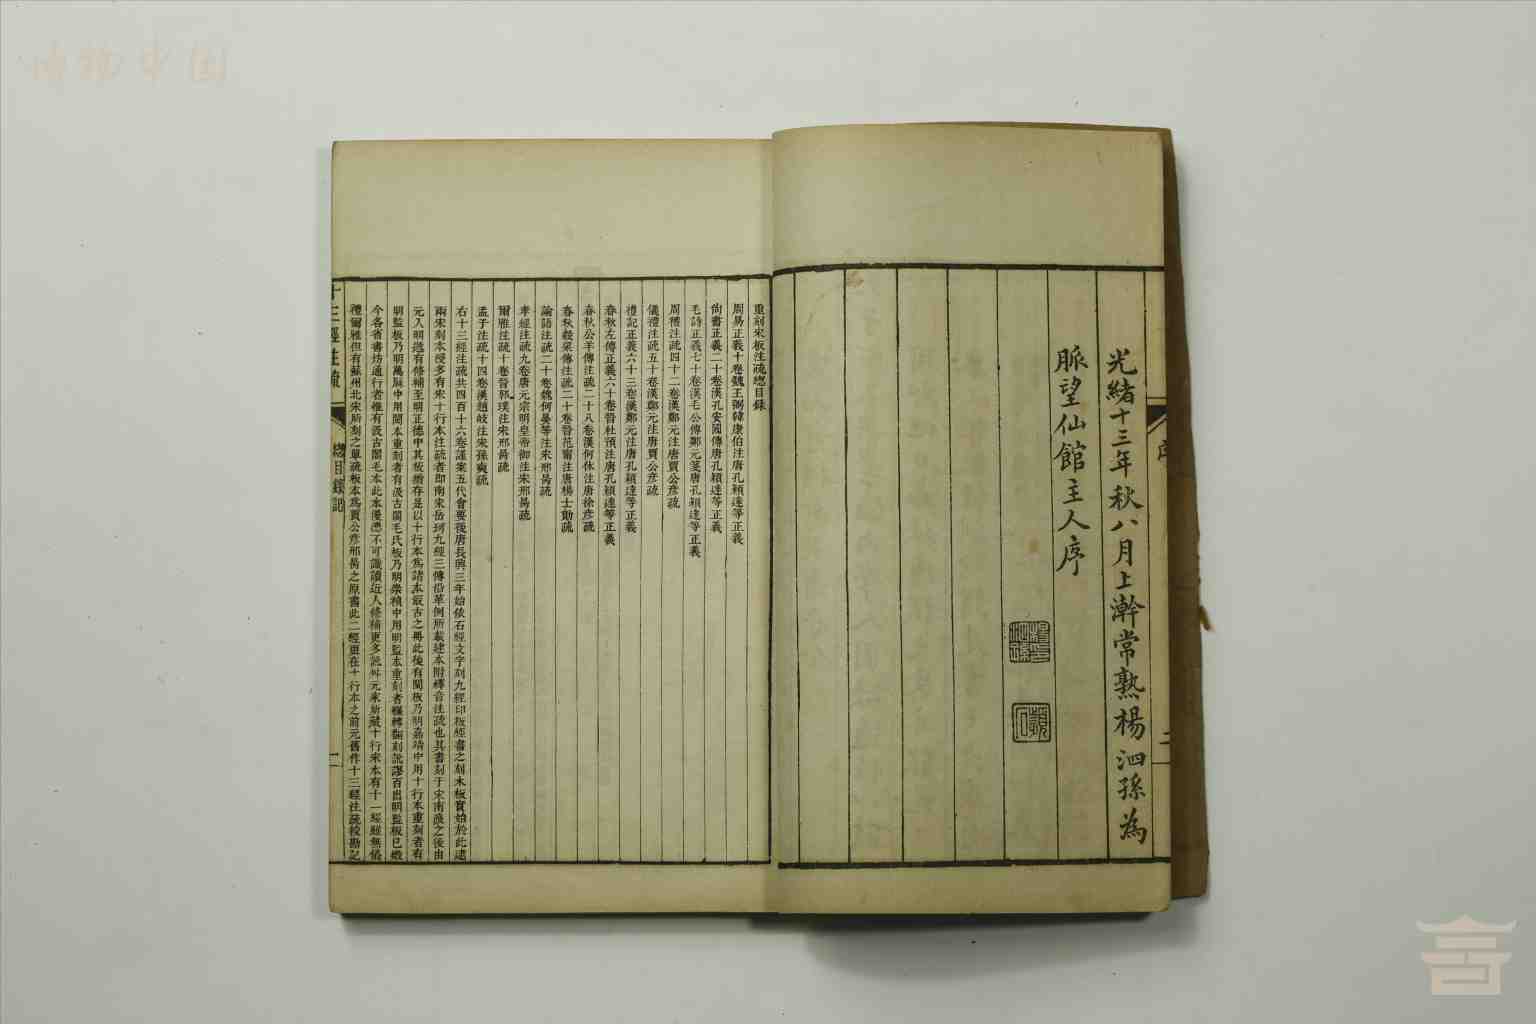 光緒十三年秋八月上澣常熟楊泗孫為
脈望仙館主人序
重刻宋板注疏總目錄
周易正義十卷魏王弼韓康伯注唐孔穎達等正義
尚書正義二十卷漢孔安國傳唐孔穎達等正義
毛詩正義七十卷漢毛公傳鄭元箋唐孔穎達等正義
周禮注疏四十二卷漢鄭元注唐賈公彥疏
儀禮注疏五十卷漢鄭元注唐賈公彥疏
禮記正義六十三卷漢鄭元注唐孔穎達等正義
春秋左傳正義六十卷晉杜預注唐孔穎達等正義
春秋公羊傳注疏二十八卷漢何休注唐徐彥疏
春秋穀梁傳注疏二十卷晉范甯注唐楊士勛疏
論語注疏二十卷魏何晏等注宋邢昺疏
孝經注疏九卷唐元宗明皇帝御注宋邢昺疏
爾雅注疏十卷晉郭璞注宋邢昺疏
孟子注疏十四卷漢趙岐注宋孫奭疏
右十三經注疏共四百十六卷謹案五代會要後唐長興三年始依石經文字刻九經印板經書之刻木板實始於此逮
兩宋刻本浸多有宋十行本注疏者即南宋岳珂九經三傳沿革例所載建本附釋音注疏也其書刻于宋南渡之後由
元入明遞有修補至明正德中其板猶存是以十行本為諸本最古之冊此後有閩板乃明嘉靖中用十行本重刻者有
明監板乃明萬厤中用閩本重刻者有汲古閣毛氏板乃明崇禎中用明監本重刻者輾轉翻刻訛謬百出明監板已燬
今各省書坊通行者惟有汲古閣毛本此本漫漶不可識讀近人修補更多訛舛元家所藏十行宋本有十一經雖無儀
禮爾雅但有蘇州北宋所刻之單疏板本為賈公彥邢昺之原書此二經更在十行本之前元舊作十三經注疏挍勘記
十三經注疏
總目錄記
一